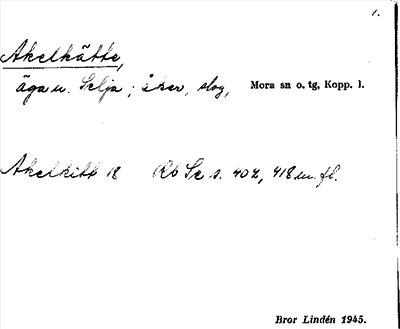 1.
Åkelkätte,
ägu u. Selja; åker, slog, Mora sn o. tg, Kopp. l.
Åkelkitt 18 Rb Se s. 402, 418 m. fl.
Bror Lindén 1945.